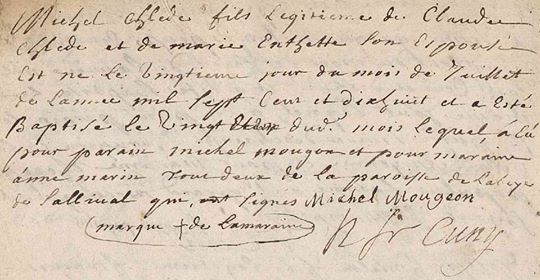 Michel Chlede fils legitieme de Claude
Chlede et de marie Enthette son Espouse
Est ne le vingtieme jour du mois de Juillet
de lannee mil sept Cent et dixhuit et a Esté
Baptisé le vingt dud. mois lequel, à Eü
pour parain michel mougon et pour maraine
anne marin tout deux de la paroise de
de qui, ont signes Michel Mougeon
marque + de lamaraine
Cuny